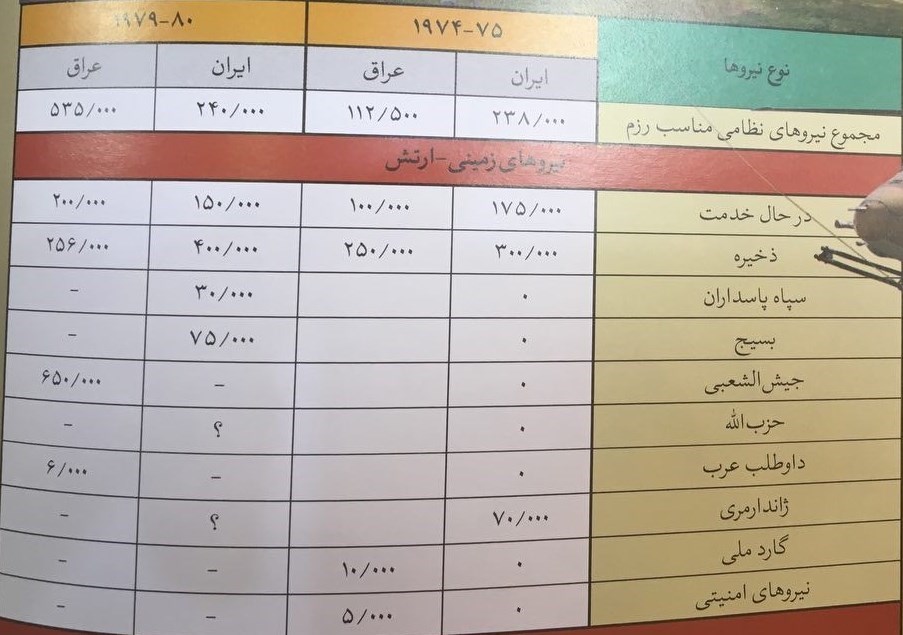 نوع نیروها ۱۹۷۴-۷۵ ۱۹۷۹-۸۰
ایران عراق ایران عراق
مجموع نیروهای نظامی مناسب رزم ۲۳۸/۰۰۰ ۱۱۲/۵۰۰ ۲۴۰/۰۰۰ ۵۳۵/۰۰۰
نیروهای زمینی-ارتش
در حال خدمت ۱۷۵/۰۰۰ ۱۰۰/۰۰۰ ۱۵۰/۰۰۰ ۲۰۰/۰۰۰
ذخیره ۳۰۰/۰۰۰ ۲۵۰/۰۰۰ ۴۰۰/۰۰۰ ۲۵۶/۰۰۰
سپاه پاسداران ۰ ۳۰/۰۰۰ -
بسیج ۰ ۷۵/۰۰۰ -
جیش‌الشعبی ۰ - ۶۵۰/۰۰۰
حزب‌الله ۰ ؟ -
داوطلب عرب ۰ - ۶/۰۰۰
ژاندارمری ۷۰/۰۰۰ ؟ -
گارد ملی ۰ ۱۰/۰۰۰ - -
نیروهای امنیتی ۰ ۵/۰۰۰ - -